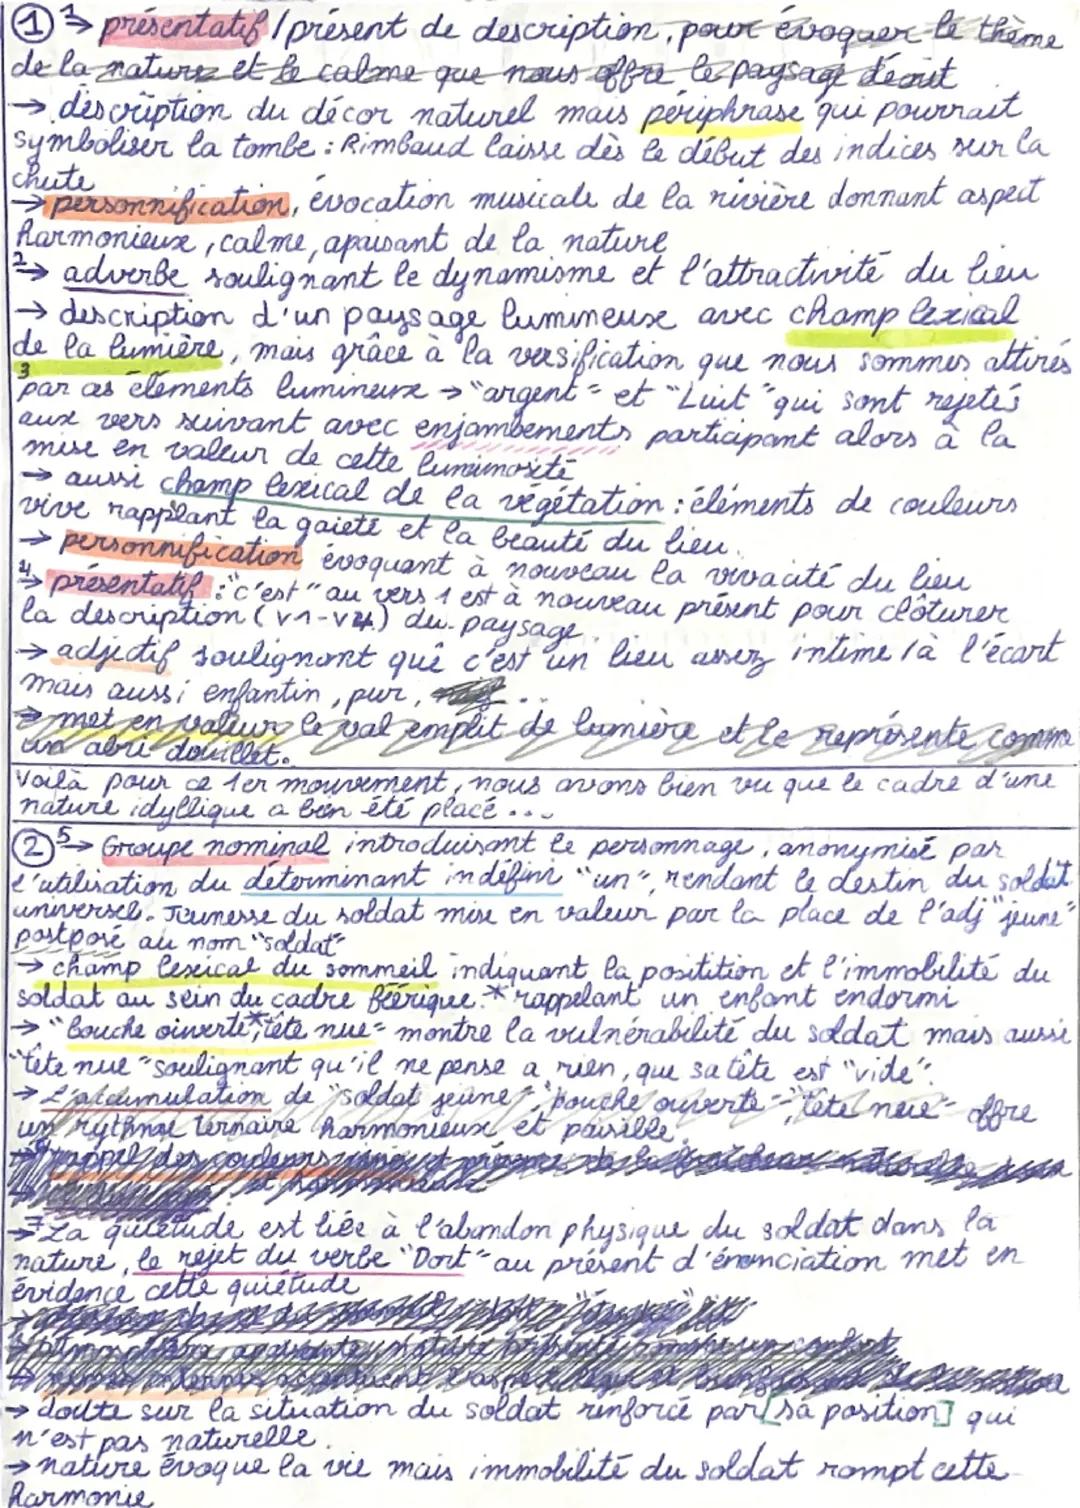 ① 1→ présentatif / présent de description, pour évoquer le thème
de la nature et le calme que nous offre le paysage décrit
→ description du décor naturel mais périphrase qui pourrait
symboliser la tombe : Rimbaud laisse dès le début des indices sur la
chute
→ personnification, évocation musicale de la rivière donnant aspect
harmonieux, calme, apaisant de la nature
2→ adverbe soulignant le dynamisme et l'attractivité du lieu
→ description d'un paysage lumineux avec champ lexical
de la lumière, mais grâce à la versification que nous sommes attirés
3 par ces éléments lumineux → "argent" et "Luit" qui sont rejetés
aux vers suivant avec enjambements participant alors à la
mise en valeur de cette luminosité
→ aussi champ lexical de la végétation : éléments de couleurs
vive rappelant la gaieté et la beauté du lieu.
→ personnification évoquant à nouveau la vivacité du lieu
4→ présentatif : "c'est" au vers 1 est à nouveau présent pour clôturer
la description (v1-v4) du paysage.
→ adjectif soulignant que c'est un lieu assez intime / à l'écart
mais aussi enfantin, pur, ...
→ met en valeur le val emplit de lumière et le représente comme
un abri douillet.
Voilà pour ce 1er mouvement, nous avons bien vu que le cadre d'une
nature idyllique a bien été placé ...
② 5→ Groupe nominal introduisant le personnage, anonymisé par
l'utilisation du déterminant indéfini "un", rendant le destin du soldat
universel. Jeunesse du soldat mise en valeur par la place de l'adj "jeune"
postposé au nom "soldat"
→ champ lexical du sommeil indiquant la position et l'immobilité du
soldat au sein du cadre féérique.* rappelant un enfant endormi
→ "bouche ouverte*, tête nue" montre la vulnérabilité du soldat mais aussi
"tête nue" soulignant qu'il ne pense a rien, que sa tête est "vide".
→ L'accumulation de "soldat jeune", "bouche ouverte", "tête nue" offre
un rythme ternaire harmonieux et paisible.
7→ La quiétude est liée à l'abandon physique du soldat dans la
nature, le rejet du verbe "Dort" au présent d'énonciation met en
évidence cette quiétude
→ doute sur la situation du soldat renforcé par [sa position] qui
n'est pas naturelle.
→ nature évoque la vie mais immobilité du soldat rompt cette
harmonie